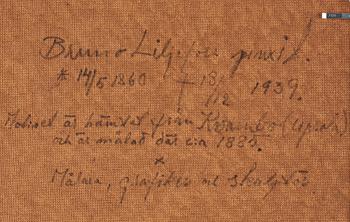 Bruno Liljefors pinxit.
* 14/5 1860 † 18/12 1939.
Motivet är hämtat från Kvarnbo (Upsala)
och är målat där cia 188
*
Målare, grafiker o skulptör.